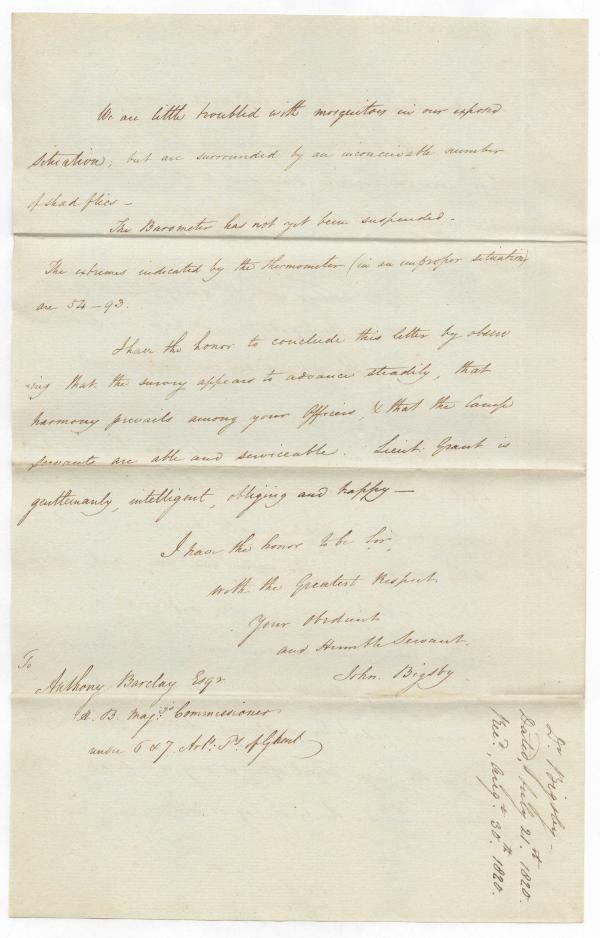 We are little troubled with mosquitoes in our exposed
situation; but are surrounded by an inconceivable number
of shad flies -
The Barometer has not yet been suspended -
The extremes indicated by the thermometer (in an improper situation)
are 54 - 93.
I have the honor to conclude this letter by observ
ing that the survey appears to advance steadily, that
harmony prevails among your Officers, & that the Camp
servants are able and serviceable. Lieut. Grant is
gentlemanly, intelligent, obliging and happy -
I have the honor to be Sir,
with the Greatest Respect
Your Obedient
and Humble Servant.
John. Bigsby
To
Anthony Barclay Esqr
&. B. Maj:ys Commissioner
under 6 & 7 Arts: Ty. of Ghent
Dr Bigsby -
Dated, July 21.st 1820.
Rec'd, Augt 30.th 1820.